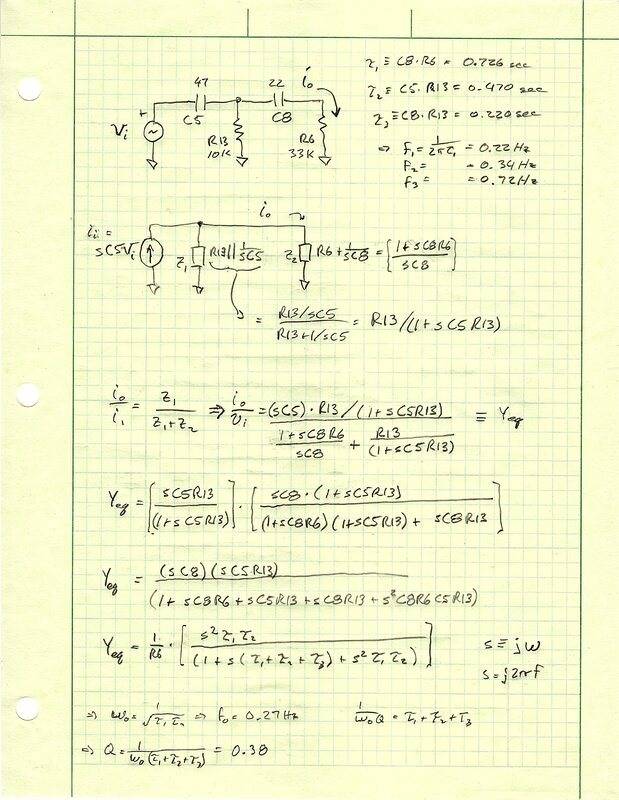 τ₁ ≡ C8·R6 = 0.726 sec
τ₂ ≡ C5·R13 = 0.470 sec
τ₃ ≡ C8·R13 = 0.220 sec
⇒ f₁ = 1/(2πτ₁) = 0.22 Hz
f₂ = = 0.34 Hz
f₃ = = 0.72 Hz
47 22 i₀
+ C5 C8
Vi ~
R13 R6
10K 33K
i₀
ii = sC5Vi ↑ Z₁ R13||1/sC5 Z₂ R6 + 1/sC8 = [(1+sC8R6)/sC8]
= (R13/sC5)/(R13+1/sC5) = R13/(1+sC5R13)
i₀/i₁ = Z₁/(Z₁+Z₂) ⇒ i₀/vi = ((sC5)·R13/(1+sC5R13))/((1+sC8R6)/sC8 + R13/(1+sC5R13)) ≡ Yeq
Yeq = [sC5R13/(1+sC5R13)]·[sC8·(1+sC5R13)/((1+sC8R6)(1+sC5R13) + sC8R13)]
Yeq = (sC8)(sC5R13)/(1+sC8R6+sC5R13+sC8R13+s²C8R6C5R13)
Yeq = 1/R6·[s²τ₁τ₂/(1+s(τ₁+τ₂+τ₃)+s²τ₁τ₂)]
s ≡ jω
s = j2πf
⇒ ω₀ = 1/√(τ₁τ₂) ⇒ f₀ = 0.27 Hz 1/(ω₀Q) = τ₁+τ₂+τ₃
⇒ Q = 1/(ω₀(τ₁+τ₂+τ₃)) = 0.38